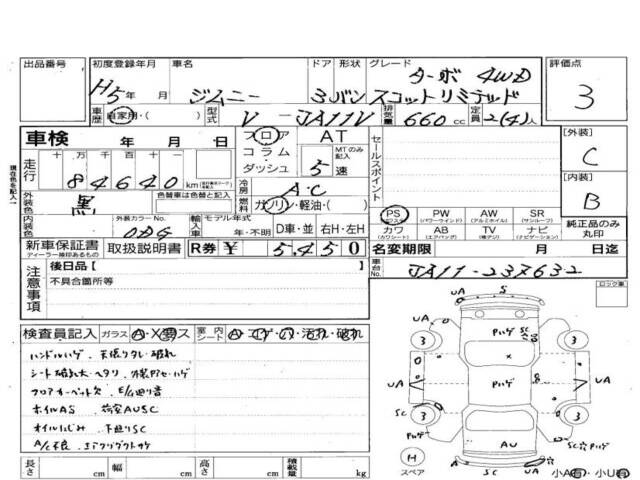 出品番号
初度登録年月 車名 ドア 形状 グレード 評価点
H5年 月 ジムニー 3 バン ターボ 4WD
スコットリミテッド
3
車歴 自家用・( ) 型式 V-JA11V 排気量 660cc 定員 2(4)人
車検 年 月 日
フロア AT
コラム・ MTのみ記入
ダッシュ 5速
セールスポイント
[外装]
C
[内装]
B
走行 十万 万 千 百 十 一
84640km
現在色を記入
外装色 黒 色替車は色替と記入
内装色 外装カラーNo. ODG
冷房 A・C
燃料 ガソリン・軽油・( )
輸入車 モデル年式 年・不明 D車・並 右H・左H
PS PW AW SR
(パワステ) (パワーウインド) (アルミホイル) (サンルーフ)
カワ AB TV ナビ
(カワシート) (エアバッグ) (純正) (ナビゲーション)
純正品のみ丸印
新車保証書 取扱説明書 R券 ¥ 5,450
ディーラー捺印あるもの
名変期限 月 日迄
車台No. JA11-237632
注意事項
後日品【
不具合箇所等
検査員記入 ガラス 室内シート
ハンドルハゲ、天張りタレ・破れ
シート破れ大・ヘタリ、内装Pセ・ハゲ
フロアカーペット欠、E/G廻り音
ホイルAS、荷室AUSC
オイルにじみ、下廻りSC
A/C不良、エアクリダクトサケ
長さ cm 幅 cm 高さ cm 積載量 kg
ロック車
S
UA
UA
Pハゲ
SC
3
3
X
UA
Pハゲ
UA
SC
3
3
Pハゲ
AU
SC☆Pハゲ
H
スペア
UA SC UA
小A有・小U有